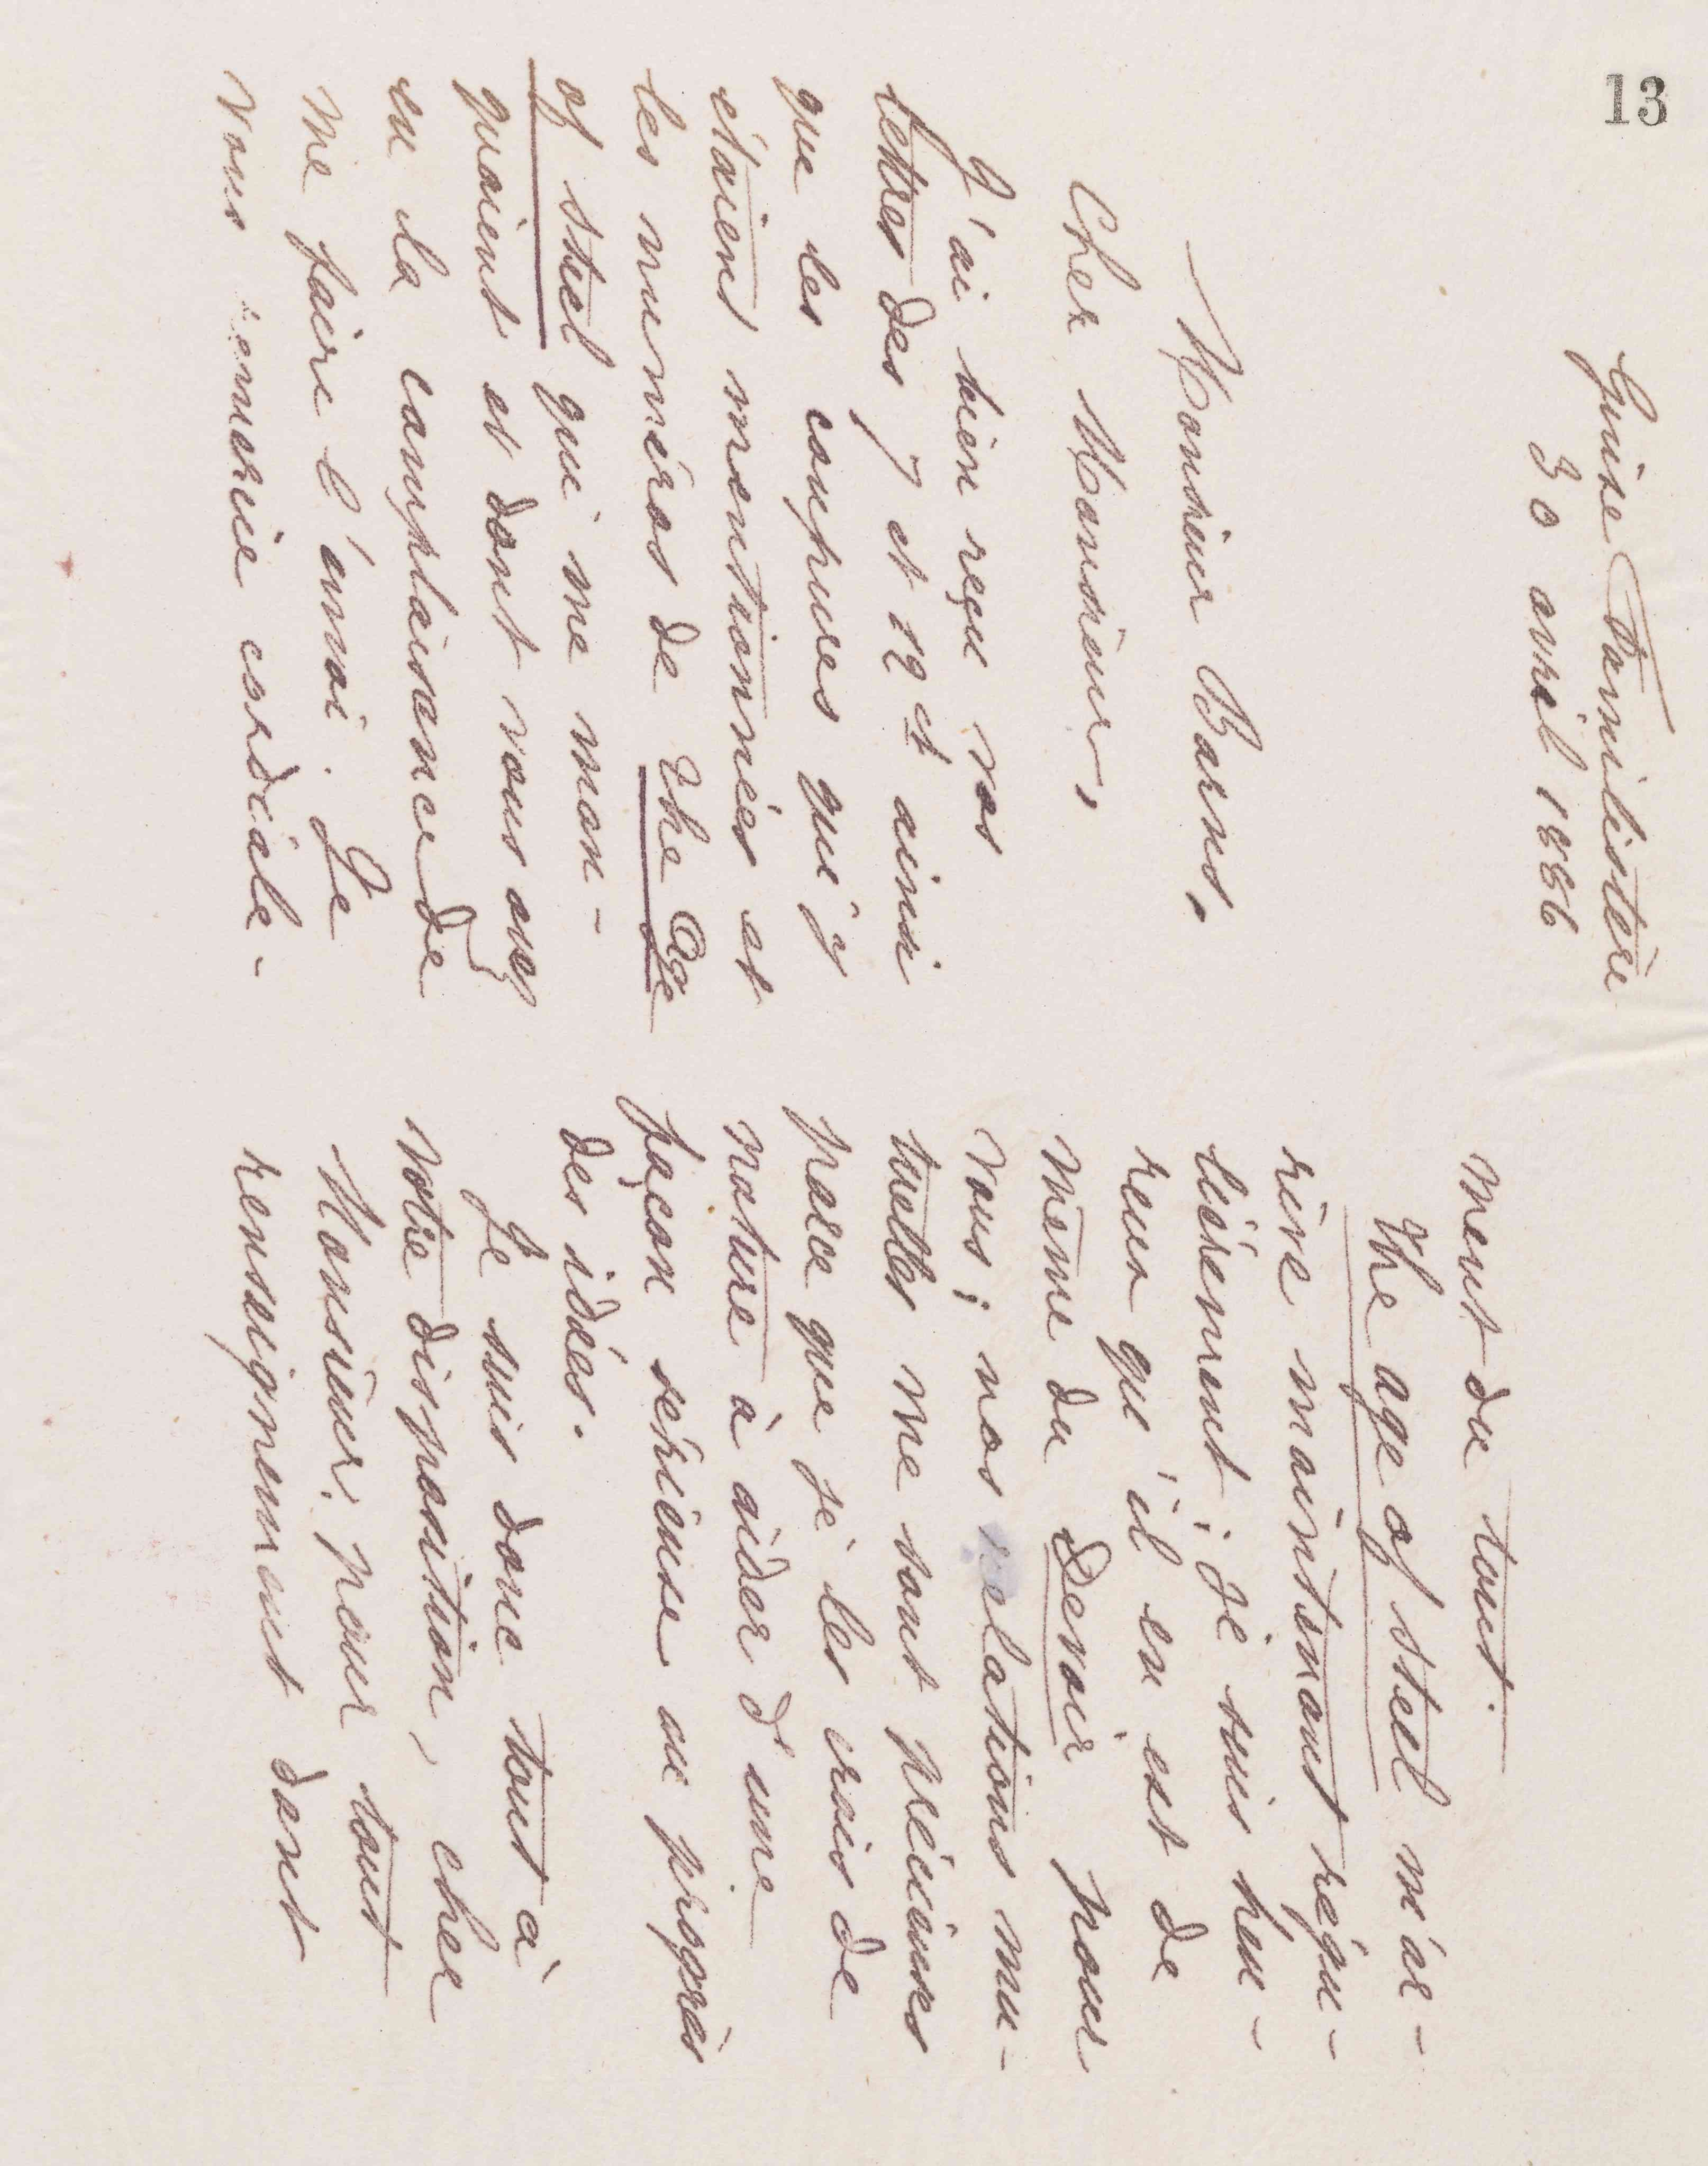 13
Guise Familistère
30 avril 1886
Monsieur Barns,
Cher Monsieur,
J'ai bien reçu vos
lettres des 7 et 12 ct ainsi
que les coupures que y
étaient mentionnées et
les numéros de The Age
of steel qui me man-
quaient et dont vous avez
eu la complaisance de
me faire l'envoi. Je
vous remercie cordiale-
ment du tout.
The age of steel m'ar-
rive maintenant régu-
lièrement; je suis heu-
reux qu'il en est de
même du Devoir pour
vous; nos relations mu-
tuelles me sont précieuses
parce que je les crois de
nature à aider d'une
façon sérieuse au progrès
des idées.
Je suis donc tout à
votre disposition, cher
Monsieur, pour tout
renseignement dont